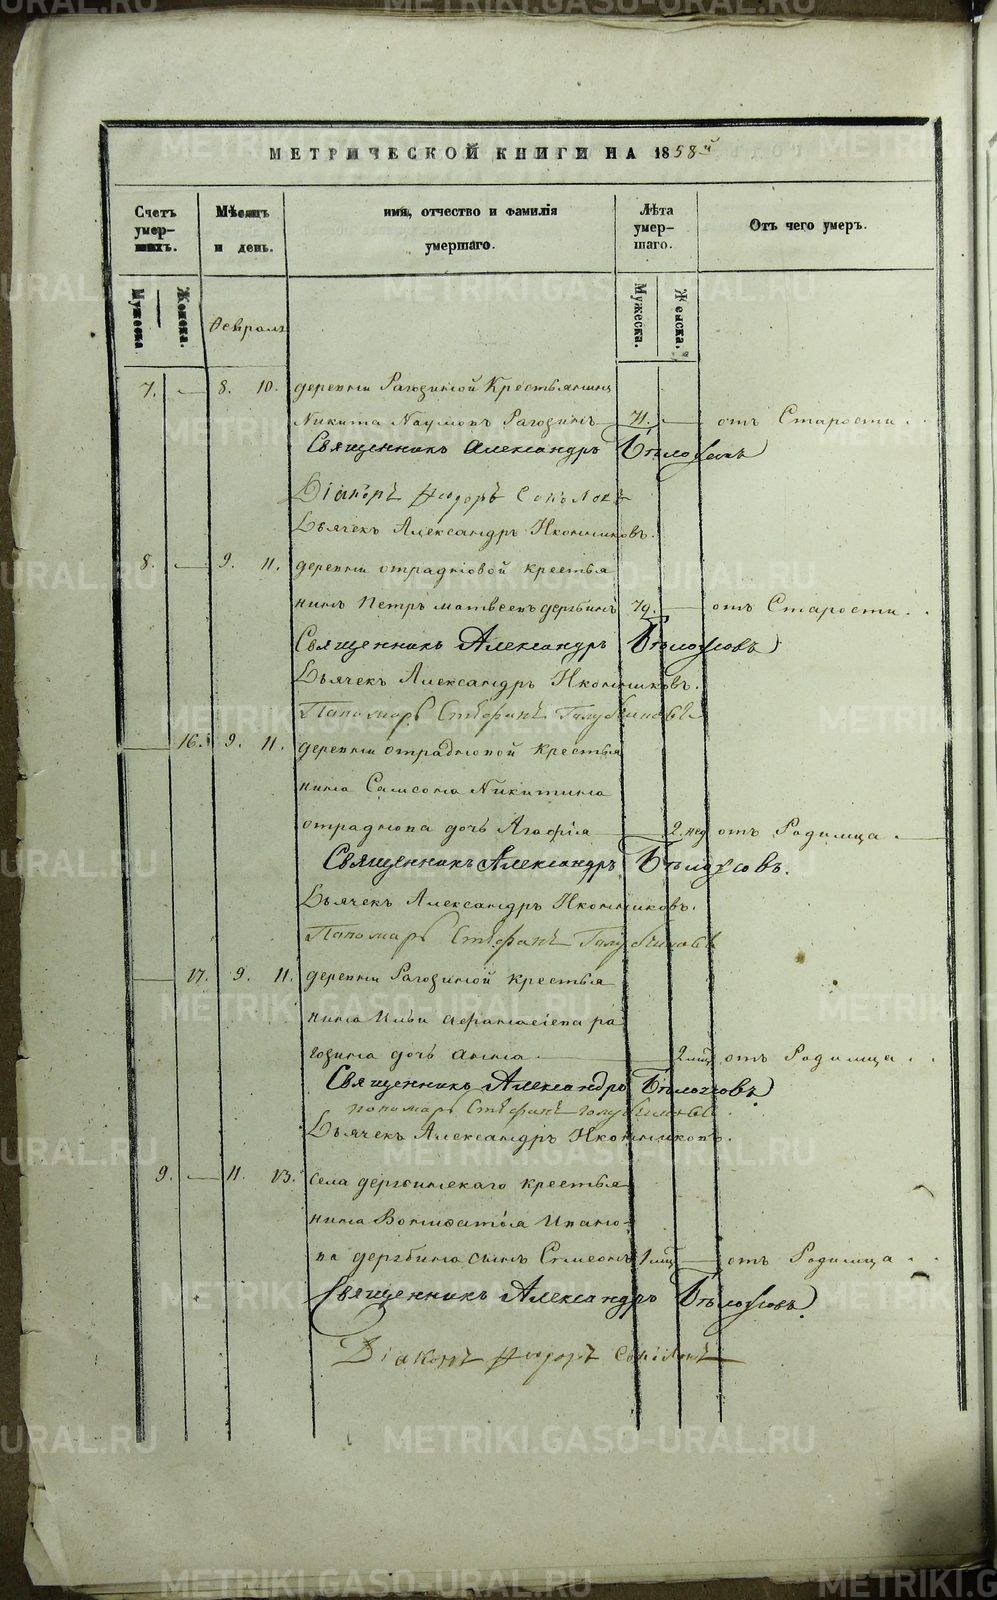 МЕТРИЧЕСКОЙ КНИГИ НА 1858й
Счетъ умер-шихъ.
Мѣсяцъ и день.
имя, отчество и фамилія умершаго.
Лѣта умер-шаго.
Отъ чего умеръ.
Мужеска.
Женска.
Февраль
Мужеска.
Женска.
7. 8. 10. деревни Рагозиной Крестьянинъ
Никита Наумовъ Рагозинъ 71. отъ Старости
Священникъ Александръ Бѣлоусовъ
Діаконъ Ѳеодоръ Соколовъ
Дьячекъ Александръ Иконниковъ.
8. 9. 11. деревни отрадновой крестья
нинъ Петръ матвеевъ дерябинъ 79. отъ Старости
Священникъ Александръ Бѣлоусовъ
Дьячекъ Александръ Иконниковъ.
Пономарь Стефанъ
16. 9. 11. деревни отрадновой крестья
нина Самсона Никитина
отраднова дочь Агафія 2 нед отъ Родимца
Священникъ Александръ Бѣлоусовъ.
Дьячекъ Александръ Иконниковъ.
Пономарь Стефанъ
17. 9. 11. деревни Рагозиной крестья
нина Ильи афанасіева ра
гозина дочь анна 2 мѣс отъ Родимца
Священникъ Александръ Бѣлоусовъ
пономарь Стефанъ
Дьячекъ Александръ Иконниковъ.
9. 11. 13. села дерябинскаго крестья
нина Вонифатія Ивано-
ва дерябина сынъ Симеонъ 1 мѣс отъ Родимца
Священникъ Александръ Бѣлоусовъ
Діаконъ Ѳеодоръ Соколовъ
METRIKI.GASO-URAL.RU